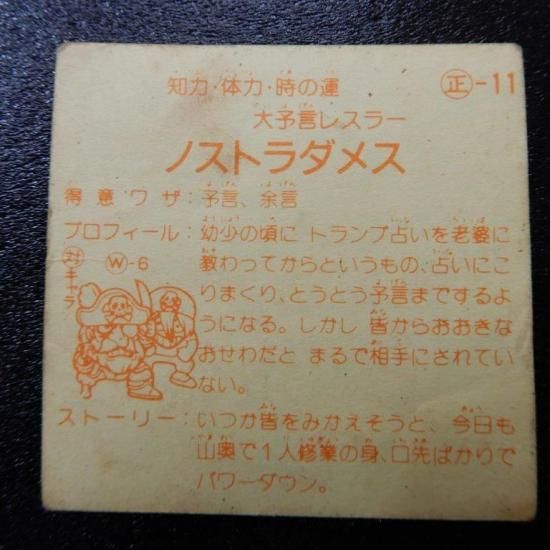 知力・体力・時の運
正-11
大予言レスラー
ノストラダメス
得意ワザ:予言、余言
プロフィール:幼少の頃に トランプ占いを老婆に
教わってからというもの、占いにこ
りまくり、とうとう予言までするよ
うになる。しかし 皆からおおきな
おせわだと まるで相手にされてい
ない。
対キャラ
W-6
ストーリー:いつか皆をみかえそうと、今日も
山奥で1人修業の身、口先ばかりで
パワーダウン。